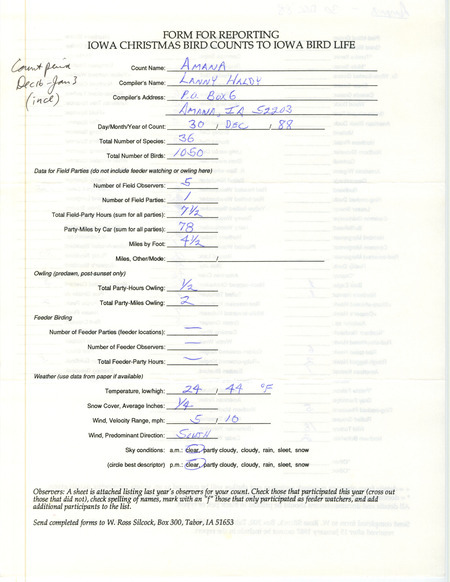 FORM FOR REPORTING
IOWA CHRISTMAS BIRD COUNTS TO IOWA BIRD LIFE
Count period
Dec 16 - Jan 3
(incl)
Count Name: AMANA
Compiler's Name: LANNY HALDY
Compiler's Address: P.O. BOX 6
AMANA, IA 52203
Day/Month/Year of Count: 30 / DEC / 88
Total Number of Species: 36
Total Number of Birds: 1050
Data for Field Parties (do not include feeder watching or owling here)
Number of Field Observers: 5
Number of Field Parties: 1
Total Field-Party Hours (sum for all parties): 7 1/2
Party-Miles by Car (sum for all parties): 78
Miles by Foot: 4 1/2
Miles, Other/Mode: /
Owling (predawn, post-sunset only)
Total Party-Hours Owling: 1/2
Total Party-Miles Owling: 2
Feeder Birding
Number of Feeder Parties (feeder locations): —
Number of Feeder Observers: —
Total Feeder-Party Hours: —
Weather (use data from paper if available)
Temperature, low/high: 24 / 44 °F
Snow Cover, Average Inches: 1/4
Wind, Velocity Range, mph: 5 / 10
Wind, Predominant Direction: SOUTH
Sky conditions: a.m.: clear, partly cloudy, cloudy, rain, sleet, snow
(circle best descriptor) p.m.: clear, partly cloudy, cloudy, rain, sleet, snow
Observers: A sheet is attached listing last year's observers for your count. Check those that participated this year (cross out
those that did not), check spelling of names, mark with an "f" those that only participated as feeder watchers, and add
additional participants to the list.
Send completed forms to W. Ross Silcock, Box 300, Tabor, IA 51653